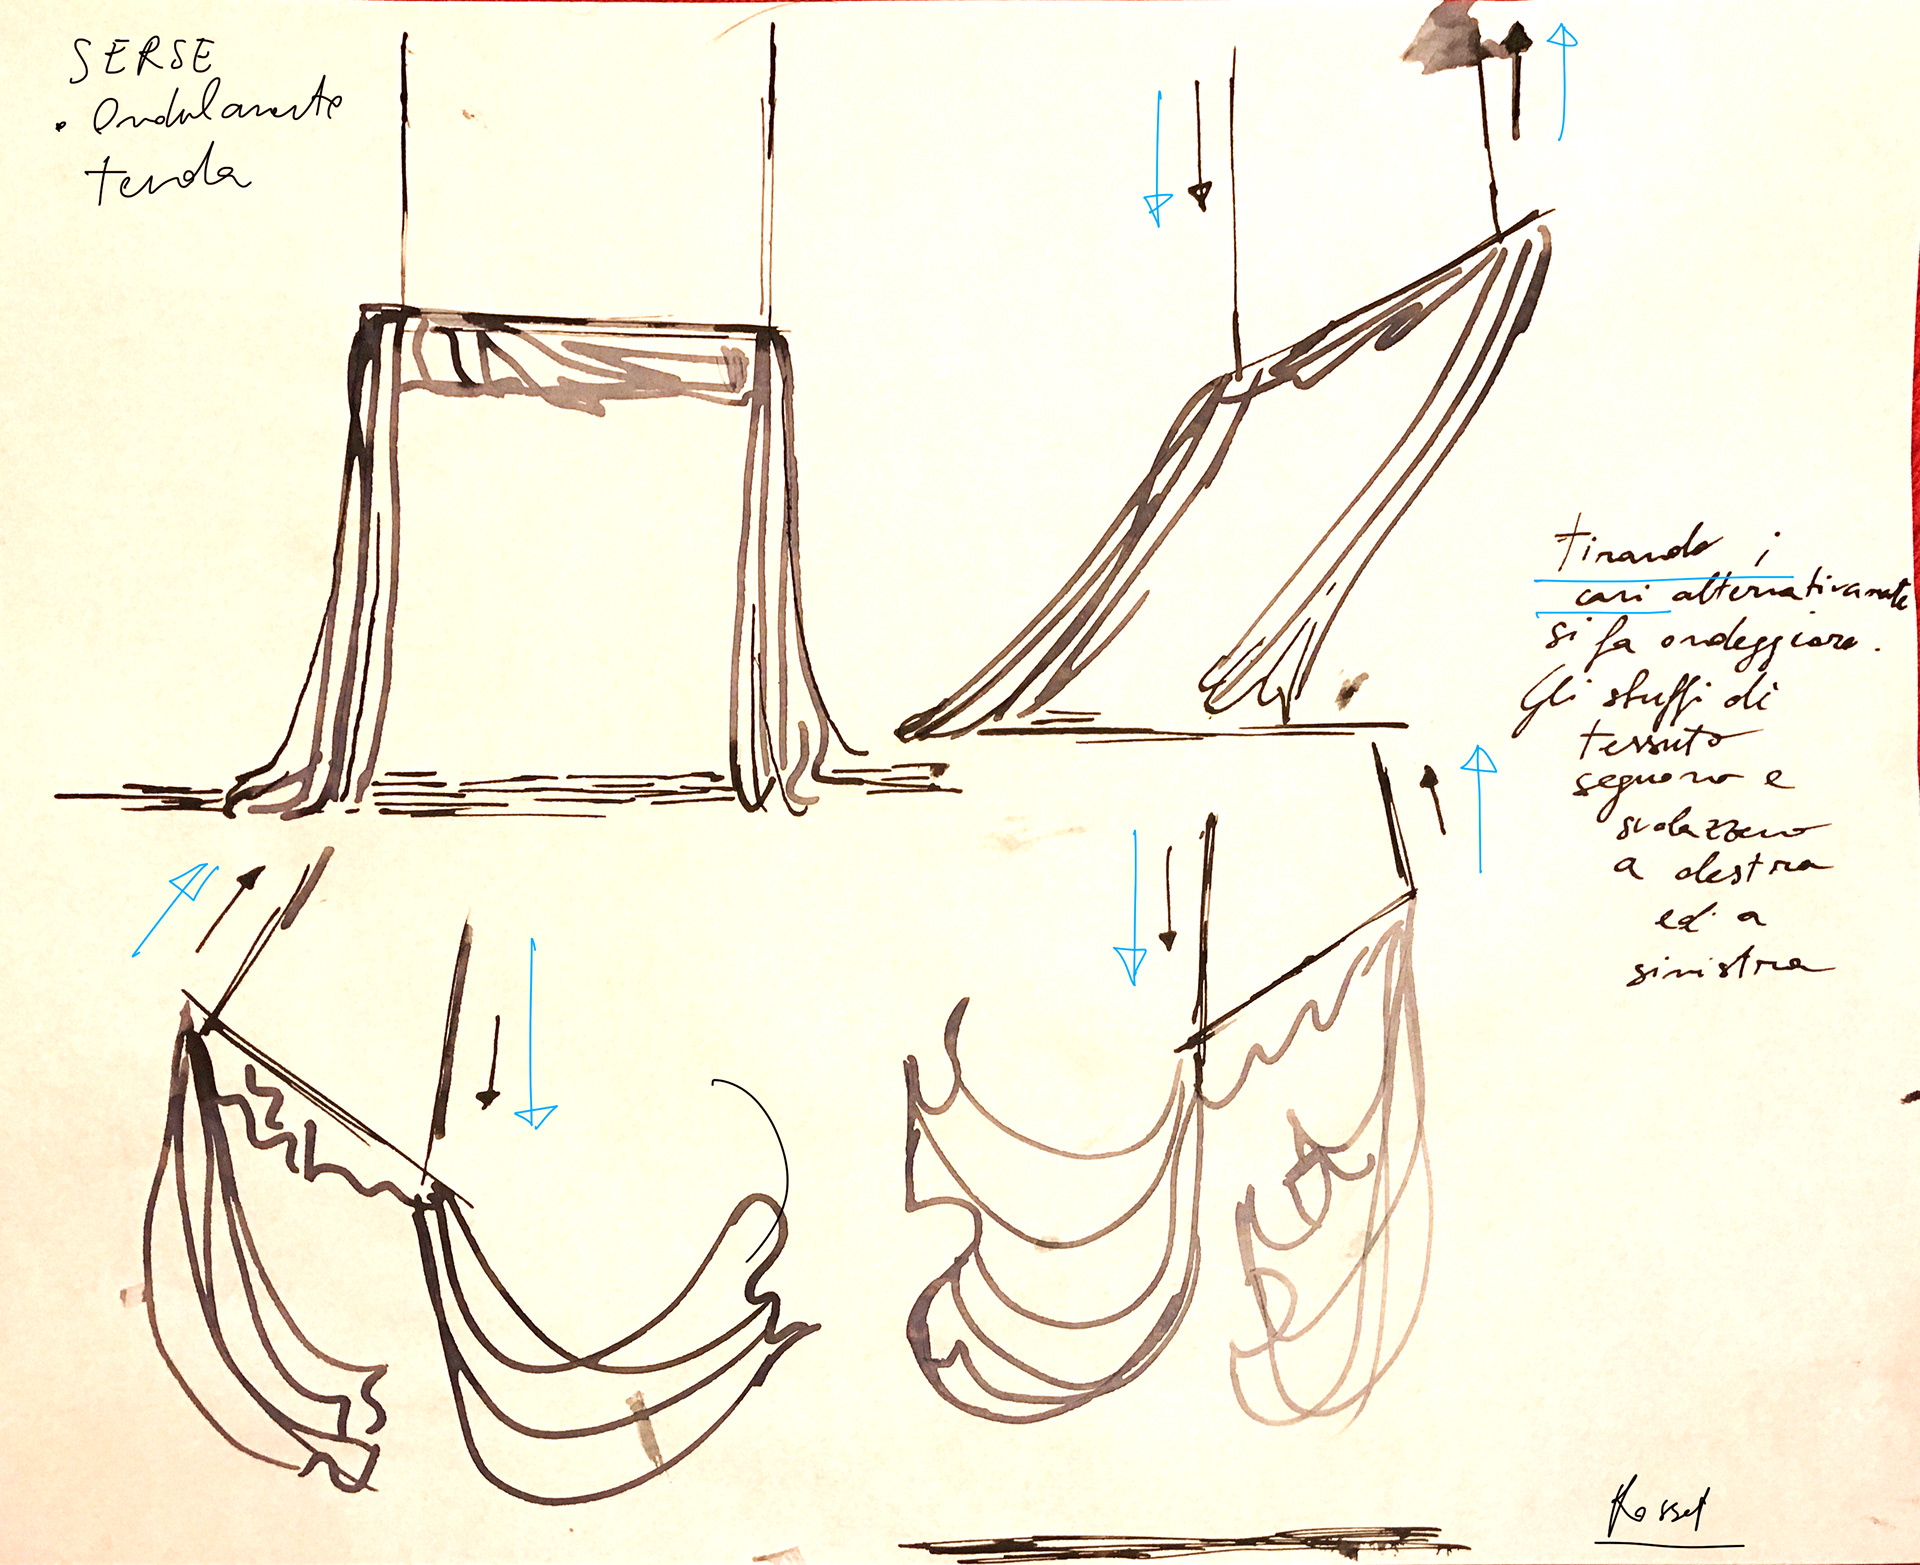 SERSE
• Ondulamento
tenda
tirando i
cavi alternativamente
si fa ondeggiare.
Gli sbuffi di
tessuto
seguono e
svolazzano
a destra
ed a
sinistra
Rosset